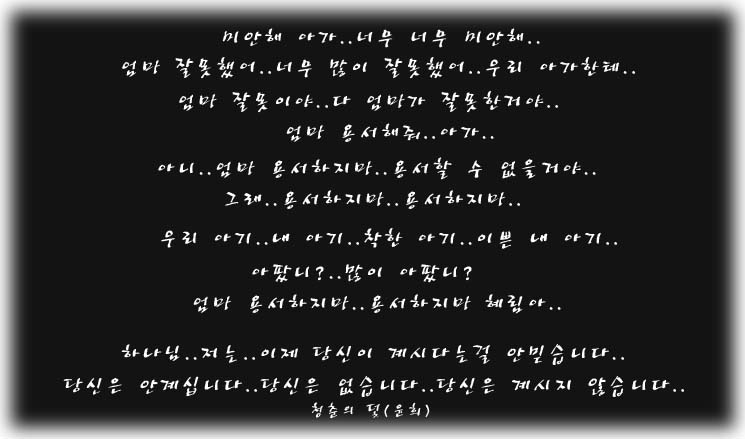 미안해 아가..너무 너무 미안해..
엄마 잘못했어..너무 많이 잘못했어..우리 아가한테..
엄마 잘못이야..다 엄마가 잘못한거야..
엄마 용서해줘..아가..
아니..엄마 용서하지마..용서할 수 없을거야..
그래..용서하지마..용서하지마..
우리 아기..내 아기..착한 아기..이쁜 내 아기..
아팠니?..많이 아팠니?
엄마 용서하지마..용서하지마 혜림아..
하나님..저는..이제 당신이 계시다는걸 안믿습니다..
당신은 안계십니다..당신은 없습니다..당신은 계시지 않습니다..
청춘의 덫(윤희)